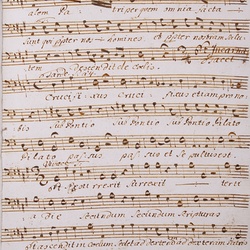 alem Pa - tri per quem omnia facta
sunt propter nos homines et propter nostram salu
tem Descendit de coelis. Et Incarna tacet
Cruci fi - xus Cruci - fixus etiam pro no
bis sub Pontio sub Pontio sub Pontio Pilato
Pilato pas - sus pas - sus et Sepultus est.
Et Resurrexit surrexit - terti
a Die Secundum Secundum Scripturas
et ascendit in Coelum Sedet ad dexteram ad dexteram